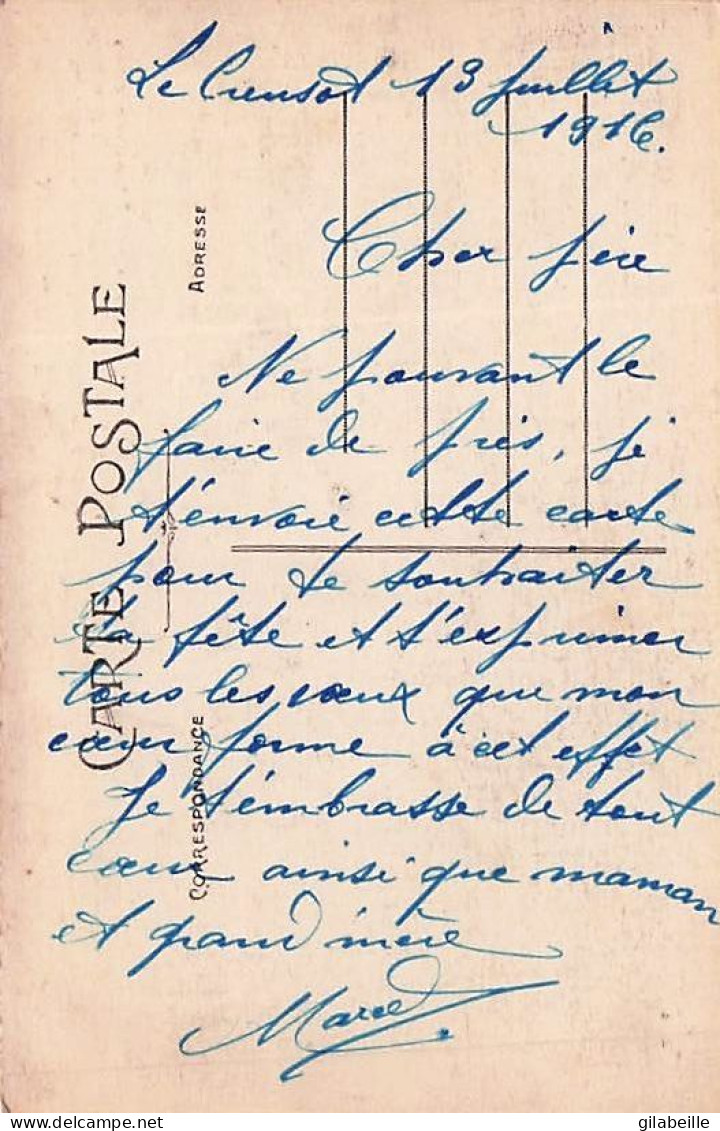 Le Creusot 13 Juillet
1916.
Cher père
Ne pouvant le
faire de près, je
t'envoie cette carte
pour te souhaiter
ta fête et t'exprimer
tous les vœux que mon
cœur forme à cet effet
Je t'embrasse de tout
cœur ainsi que maman
et grand'mère
Marcel
CARTE POSTALE
ADRESSE
CORRESPONDANCE
gilabeille